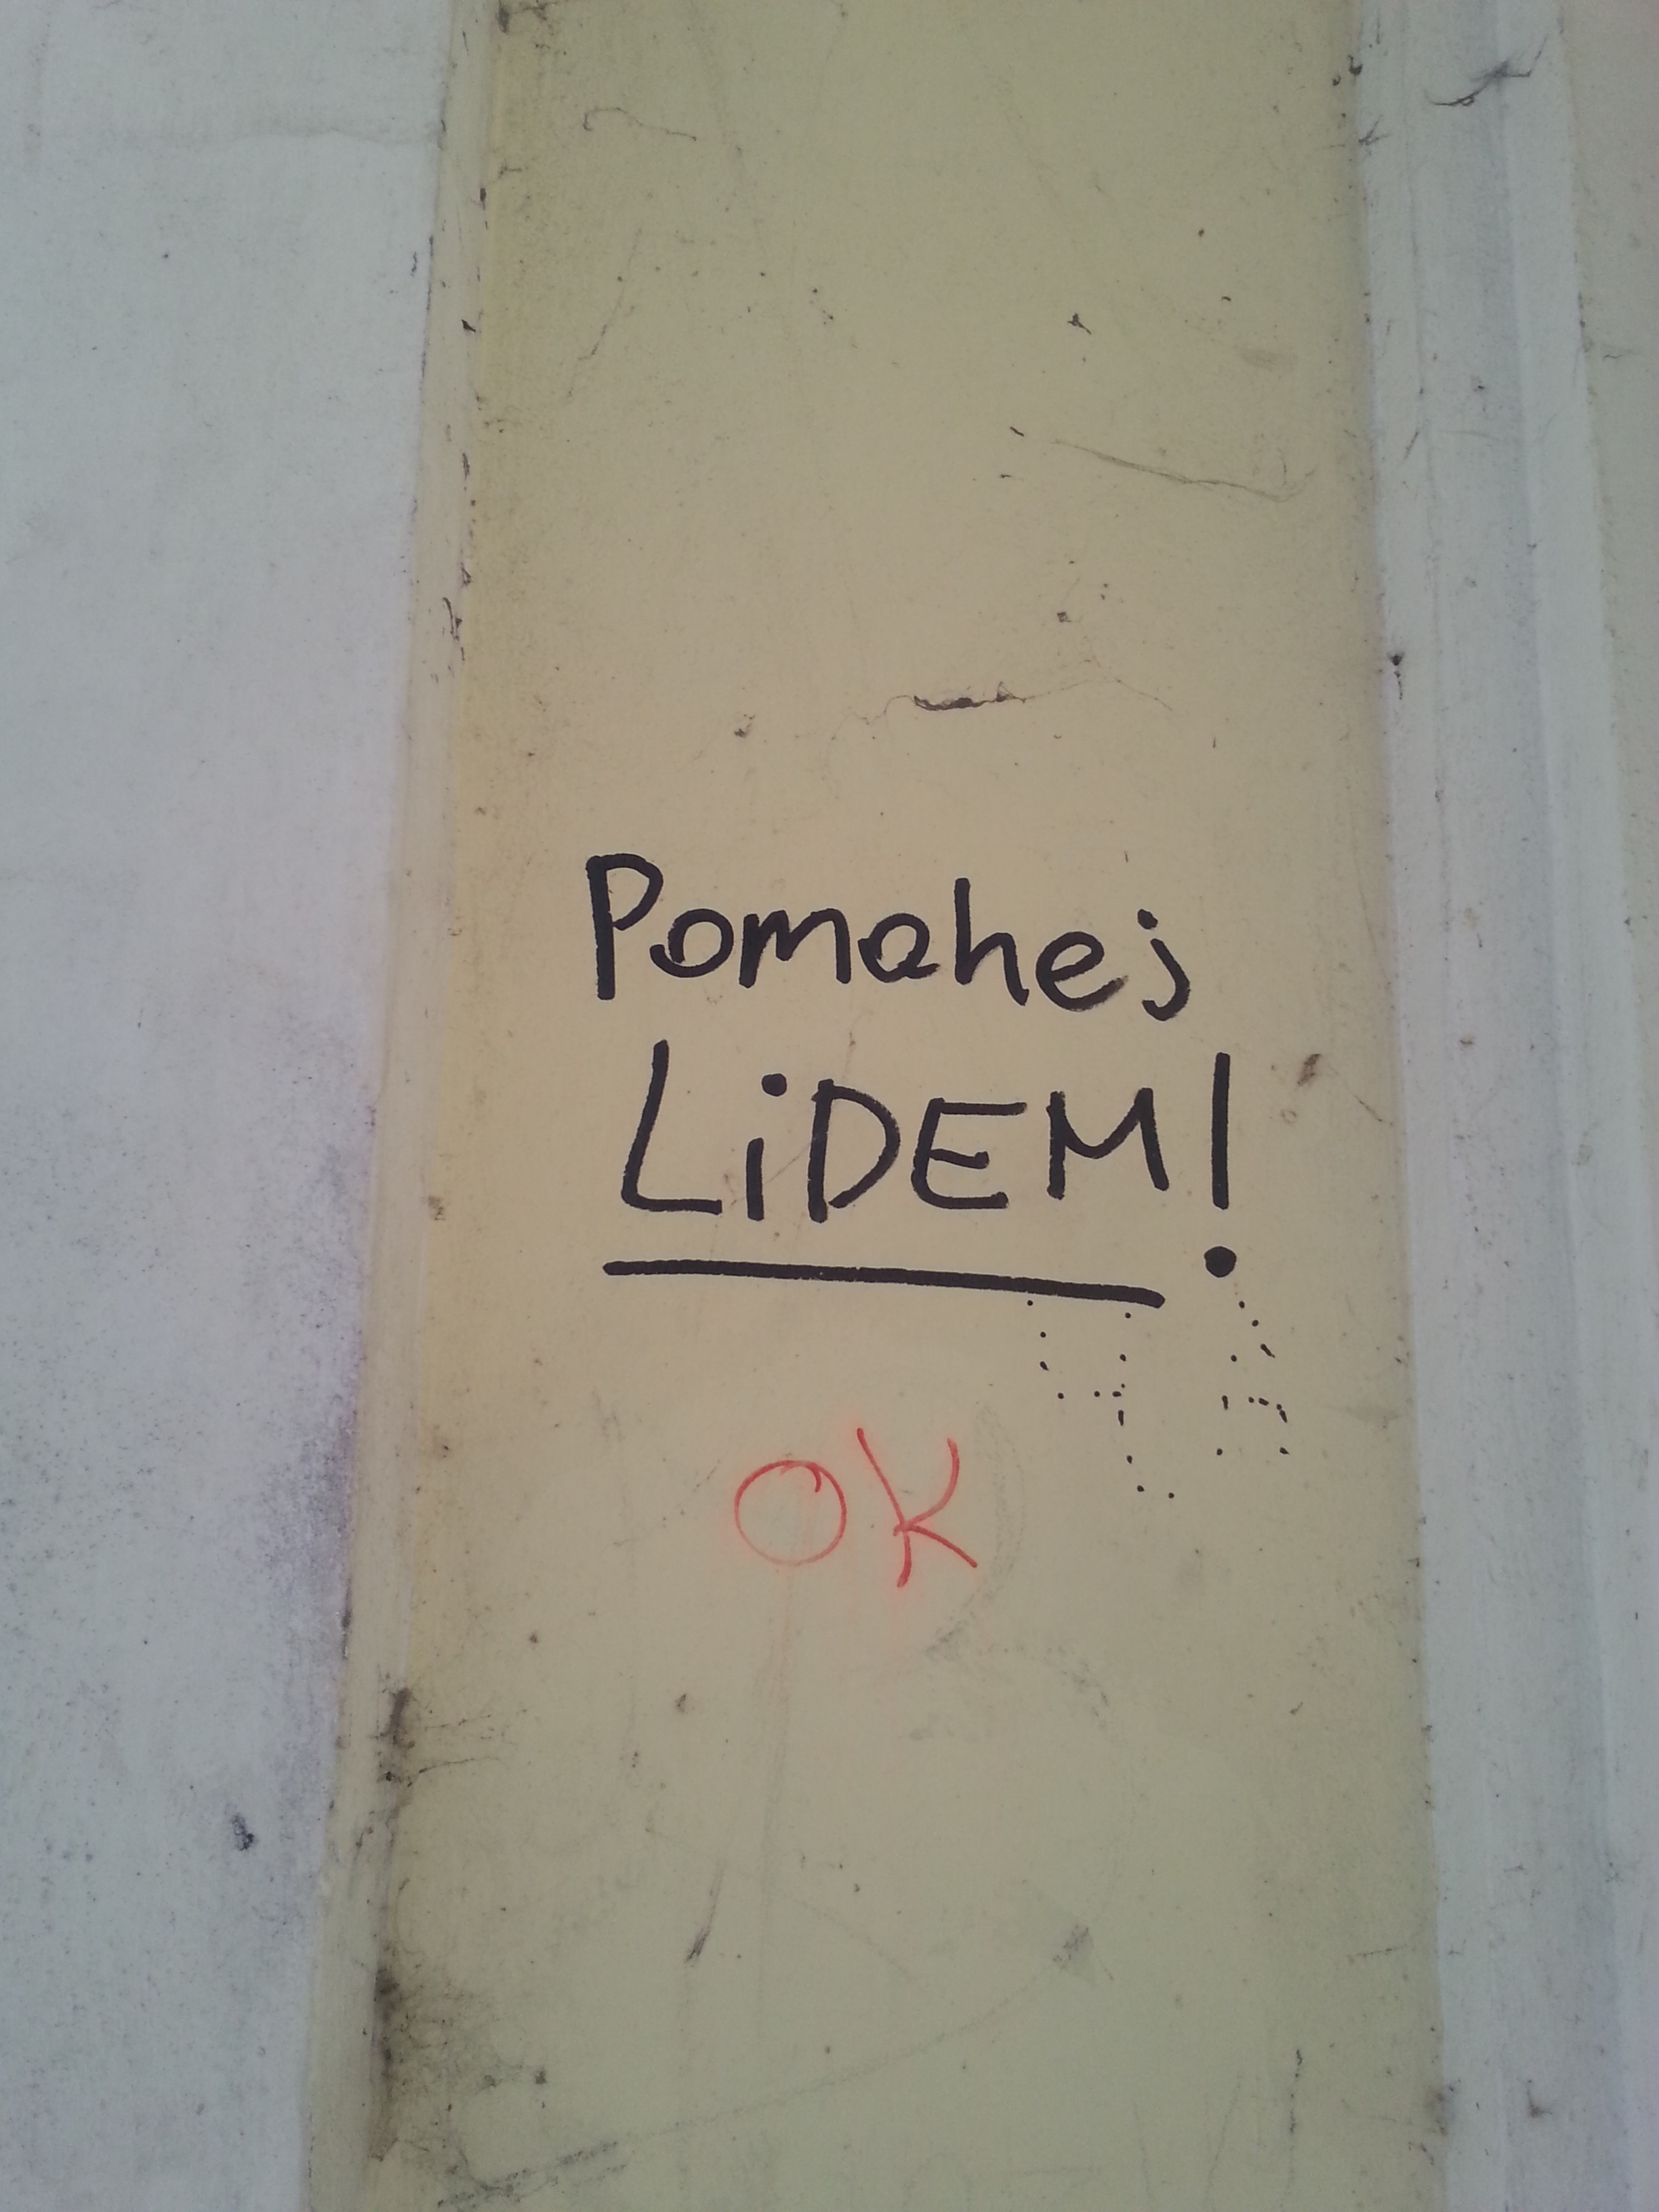 Pomahej
LiDEM!
OK